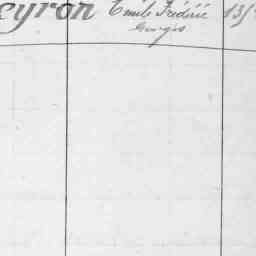 eyron Emile Frédéric 13/
Georges